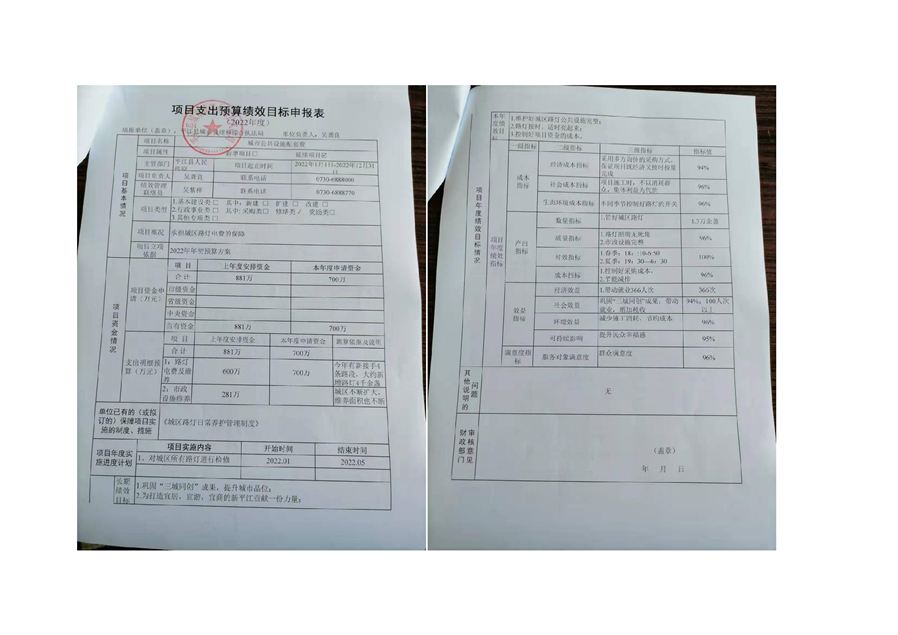 项目支出预算绩效目标申报表
(2022年度)
填报单位（盖章）：平江县城 局 单位负责人：吴贵良
项目名称 城市公共设施配套费
项目属性 新增项目□ 延续项目
主管部门 平江县人民 项目起止时间 2022年1月1日-2022年12月31日
项目负责人 吴贵良 联系电话 0730-6888000
绩效管理联络员 联系电话 0730-6888770
项目基本情况
项目类型 1.基本建设类□ 其中：新建 □ 扩建 □ 改建 □
2.行政事业类□ 其中：采购类□ 修缮类√ 奖励类□
3.其他专项类□
项目概况 承担城区路灯电费的保障
项目立项依据 2022年年初预算方案
项目资金情况
项目资金申请（万元） 项 目 上年度安排资金 本年度申请资金
合 计 881万 700万
市级资金
省级资金
中央资金
自有资金 881万 700万
支出明细预算（万元） 项 目 上年度安排资金 本年度申请资金 测算依据及说明
合计 881万 700万
1：路灯电费及维养 600万 700万 今年有新接手4条路段，大约新增路灯4千余盏
2、市政设施维养 281万 城区不断扩大，维养面积也不断
单位已有的（或拟订的）保障项目实施的制度、措施 《城区路灯日常养护管理制度》
项目年度实施进度计划 项目实施内容 开始时间 结束时间
1、对城区所有路灯进行检修 2022.01 2022.05
长期绩效目标 1.巩固“三城同创”成果，提升城市品位；
2.为打造宜居、宜游、宜商的新平江贡献一份力量；
本年度绩效目标 1.维护好城区路灯公共设施完整；
2.路灯按时、适时亮起来；
3.控制好项目资金的成本。
项目年度绩效目标情况
项目年度绩效指标
一级指标 二级指标 三级指标 指标值
成本指标 经济成本指标 采用多方询价的采购方式，保证项目既经济又按时按量完成 94%
社会成本指标 项目施工时，不以消耗群众，集体利益为代价 96%
生态环境成本指标 不同季节控制好路灯的开关 96%
产出指标 数量指标 1.管好城区路灯 1.7万余盏
质量指标 1.路灯照明无死角
2.市政设施完整 96%
时效指标 1.春季：18：10-6:50
2.夏季：19：30—6：30 100%
成本指标 1.控制好采购成本。
2.节能减排 96%
效益指标 经济效益 1.带动就业366人次 366次
社会效益 巩固“三城同创”成果，带动就业，增加税收 94%，100人次以上
环境效益 减少施工消耗，节约成本 96%
可持续影响 提升民众幸福感 95%
满意度指标 服务对象满意度 群众满意度 96%
其他说明的问题 无
财政部门审核意见 （盖章）
年 月 日